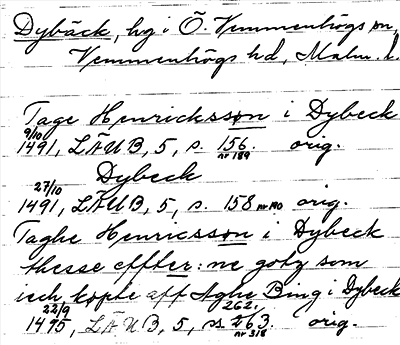 Dybäck, hg i Ö. Vemmenhögs sn,
Vemmenhögs hd, Malm. l.
Tage Henricksson i Dybeck
9/10
1491, LÄUB, 5, s. 156. orig.
nr 189
Dybeck
27/10
1491, LÄUB, 5, s. 158 nr 190 orig.
Taghe Henricsson i Dybeck
thesse effter: ne gotz som
iech køpte aff Aghe Bing i Dybeck
22/9 262,
1495, LÄUB, 5, ss. 263. orig.
nr 318